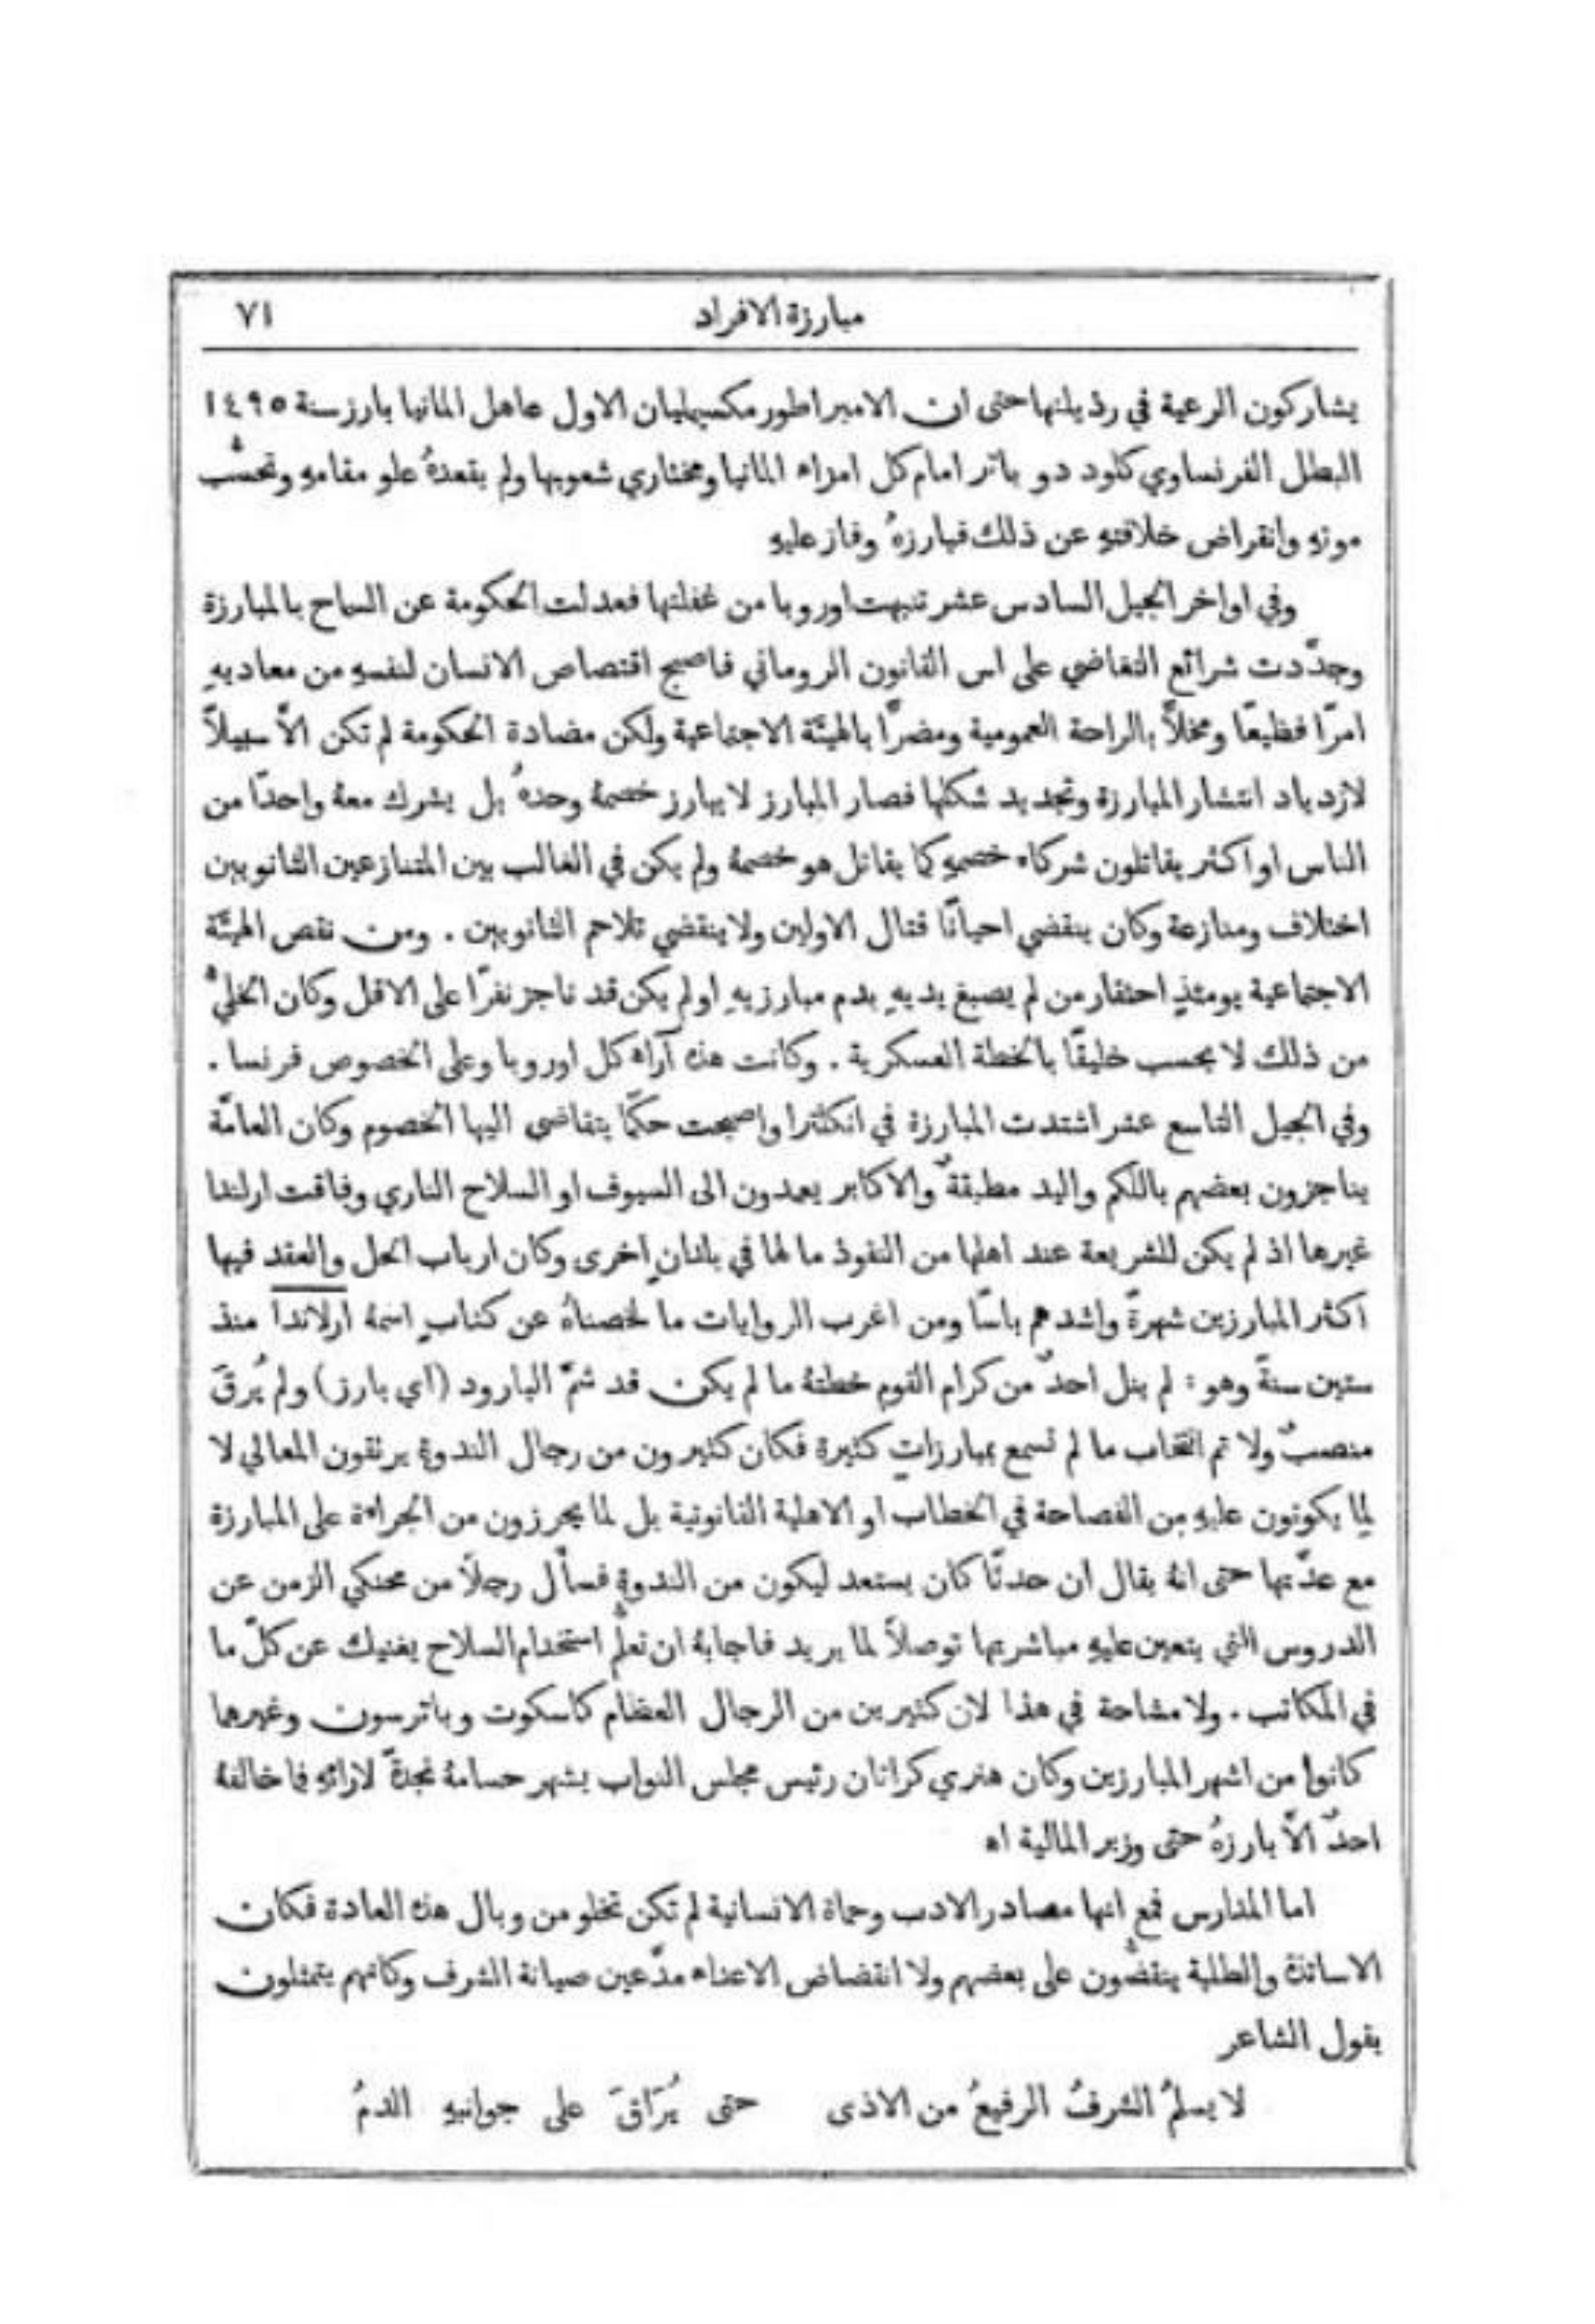 مبارزة الافراد ٧١
يشاركون الرعية في رذيلتها حتى ان الامبراطور مكسيمليان الاول عاهل المانيا بارز سنة ١٤٩٥
البطل الفرنساوي كلود دو باتر امام كل امراء المانيا ومختاري شعوبها ولم يقعدهُ علو مقامهِ وتحسُّب
موتهِ وانقراض خلافتهِ عن ذلك فبارزهُ وفاز عليهِ
وفي اواخر الجيل السادس عشر تنبهت اوروبا من غفلتها فعدلت الحكومة عن السماح بالمبارزة
وجدَّدت شرائع التقاضي على اس القانون الروماني فاصبح اقتصاص الانسان لنفسهِ من معاديهِ
امرًا فظيعًا ومخلًّا بالراحة العمومية ومضرًّا بالهيئة الاجتماعية ولكن مضادة الحكومة لم تكن الاَّ سبيلاً
لازدياد انتشار المبارزة وتجديد شكلها فصار المبارز لا يبارز خصمهُ وحدهُ بل يشرك معهُ واحدًا من
الناس او اكثر يقاتلون شركاء خصمهِ كما يقاتل هو خصمهُ ولم يكن في الغالب بين المتنازعين الثانويين
اختلاف ومنازعة وكان ينقضي احيانًا قتال الاولين ولا ينقضي تلاحم الثانويين . ومن نقص الهيئة
الاجتماعية يومئذٍ احتقار من لم يصبغ يديهِ بدم مبارزيهِ او لم يكن قد ناجز نفرًا على الاقل وكان الخليُّ
من ذلك لا يحسب خليقًا بالخطة العسكرية . وكانت هذه آراء كل اوروبا وعلى الخصوص فرنسا .
وفي الجيل التاسع عشر اشتدت المبارزة في انكلترا واصبحت حكمًا يتقاضى اليها الخصوم وكان العامَّة
يناجزون بعضهم باللكم واليد مطبقةٌ والاكابر يعمدون الى السيوف او السلاح الناري وفاقت ارلندا
غيرها اذ لم يكن للشريعة عند اهلها من النفوذ ما لها في بلدانٍ اخرى وكان ارباب الحل والعقد فيها
اكثر المبارزين شهرةً واشدهم باسًا ومن اغرب الروايات ما لخصناهُ عن كتابٍ اسمهُ ارلاندا منذ
ستين سنةً وهو : لم ينل احدٌ من كرام القوم خطتهُ ما لم يكن قد شمَّ البارود (اي بارز) ولم يُرقَ
منصبٌ ولا تم انتخاب ما لم تسمع بمبارزاتٍ كثيرة فكان كثيرون من رجال الندوة يرتقون المعالي لا
لِما يكونون عليهِ من الفصاحة في الخطاب او الاهلية القانونية بل لما يحرزون من الجراءة على المبارزة
مع عدَّتها حتى انهُ يقال ان حدثًا كان يستعد ليكون من الندوة فسأَل رجلاً من محنكي الزمن عن
الدروس التي يتعين عليهِ مباشرتها توصلاً لما يريد فاجابهُ ان تعلُّم استخدام السلاح يغنيك عن كلّ ما
في المكاتب . ولا مشاحة في هذا لان كثيرين من الرجال العظام كاسكوت وباترسون وغيرهما
كانوا من اشهر المبارزين وكان هنري كراتان رئيس مجلس النواب يشهر حسامهُ نجدةً لارائهِ فما خالفهُ
احدٌ الاَّ بارزهُ حتى وزير المالية اه
اما المدارس فمع انها مصادر الادب وحماة الانسانية لم تكن تخلو من وبال هذه العادة فكان
الاساتذة والطلبة ينقضُّون على بعضهم ولا انقضاض الاعداء مدَّعين صيانة الشرف وكانهم يتمثلون
بقول الشاعر
لا يسلمُ الشرفُ الرفيعُ من الاذى حتى يُرَاقَ على جوانبهِ الدمُ